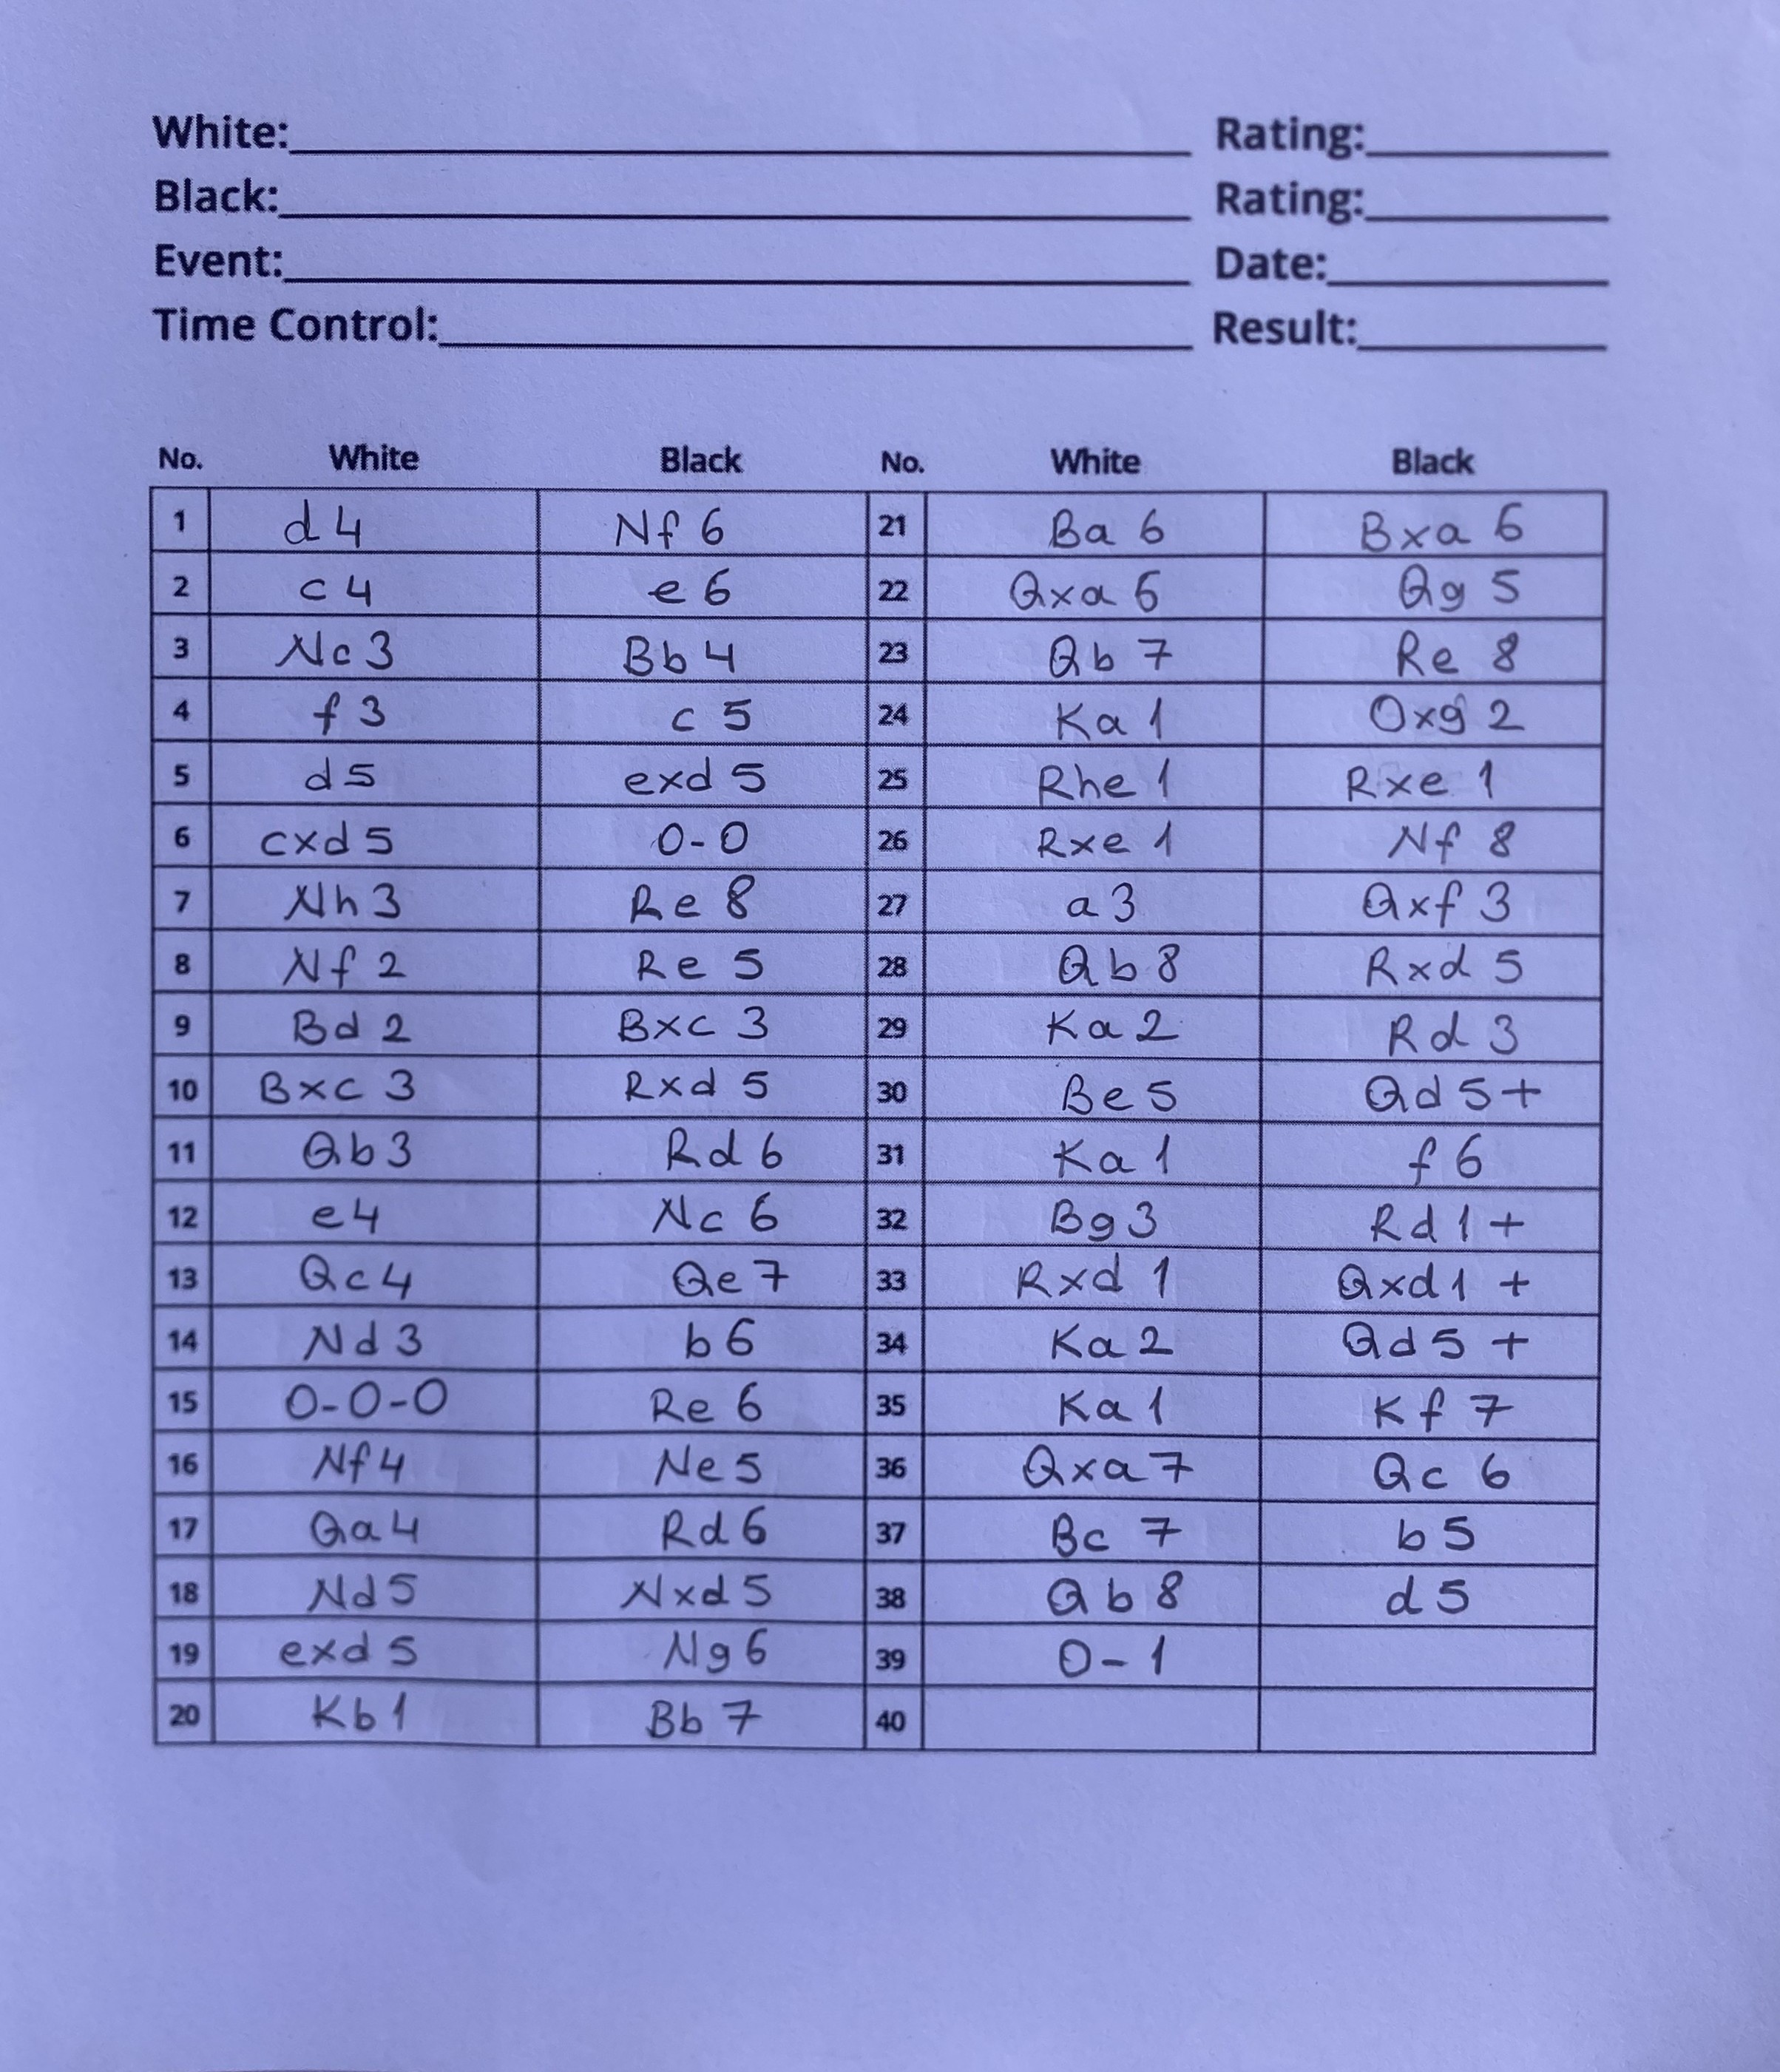 White: Rating:
Black: Rating:
Event: Date:
Time Control: Result:
No. White Black No. White Black
1 d4 Nf6 21 Ba6 Bxa6
2 c4 e6 22 Qxa6 Qg5
3 Nc3 Bb4 23 Qb7 Re8
4 f3 c5 24 Ka1 Oxg2
5 d5 exd5 25 Rhe1 Rxe1
6 cxd5 0-0 26 Rxe1 Nf8
7 Nh3 Re8 27 a3 Qxf3
8 Nf2 Re5 28 Qb8 Rxd5
9 Bd2 Bxc3 29 Ka2 Rd3
10 Bxc3 Rxd5 30 Be5 Qd5+
11 Qb3 Rd6 31 Ka1 f6
12 e4 Nc6 32 Bg3 Rd1+
13 Qc4 Qe7 33 Rxd1 Qxd1+
14 Nd3 b6 34 Ka2 Qd5+
15 0-0-0 Re6 35 Ka1 Kf7
16 Nf4 Ne5 36 Qxa7 Qc6
17 Qa4 Rd6 37 Bc7 b5
18 Nd5 Nxd5 38 Qb8 d5
19 exd5 Ng6 39 0-1
20 Kb1 Bb7 40